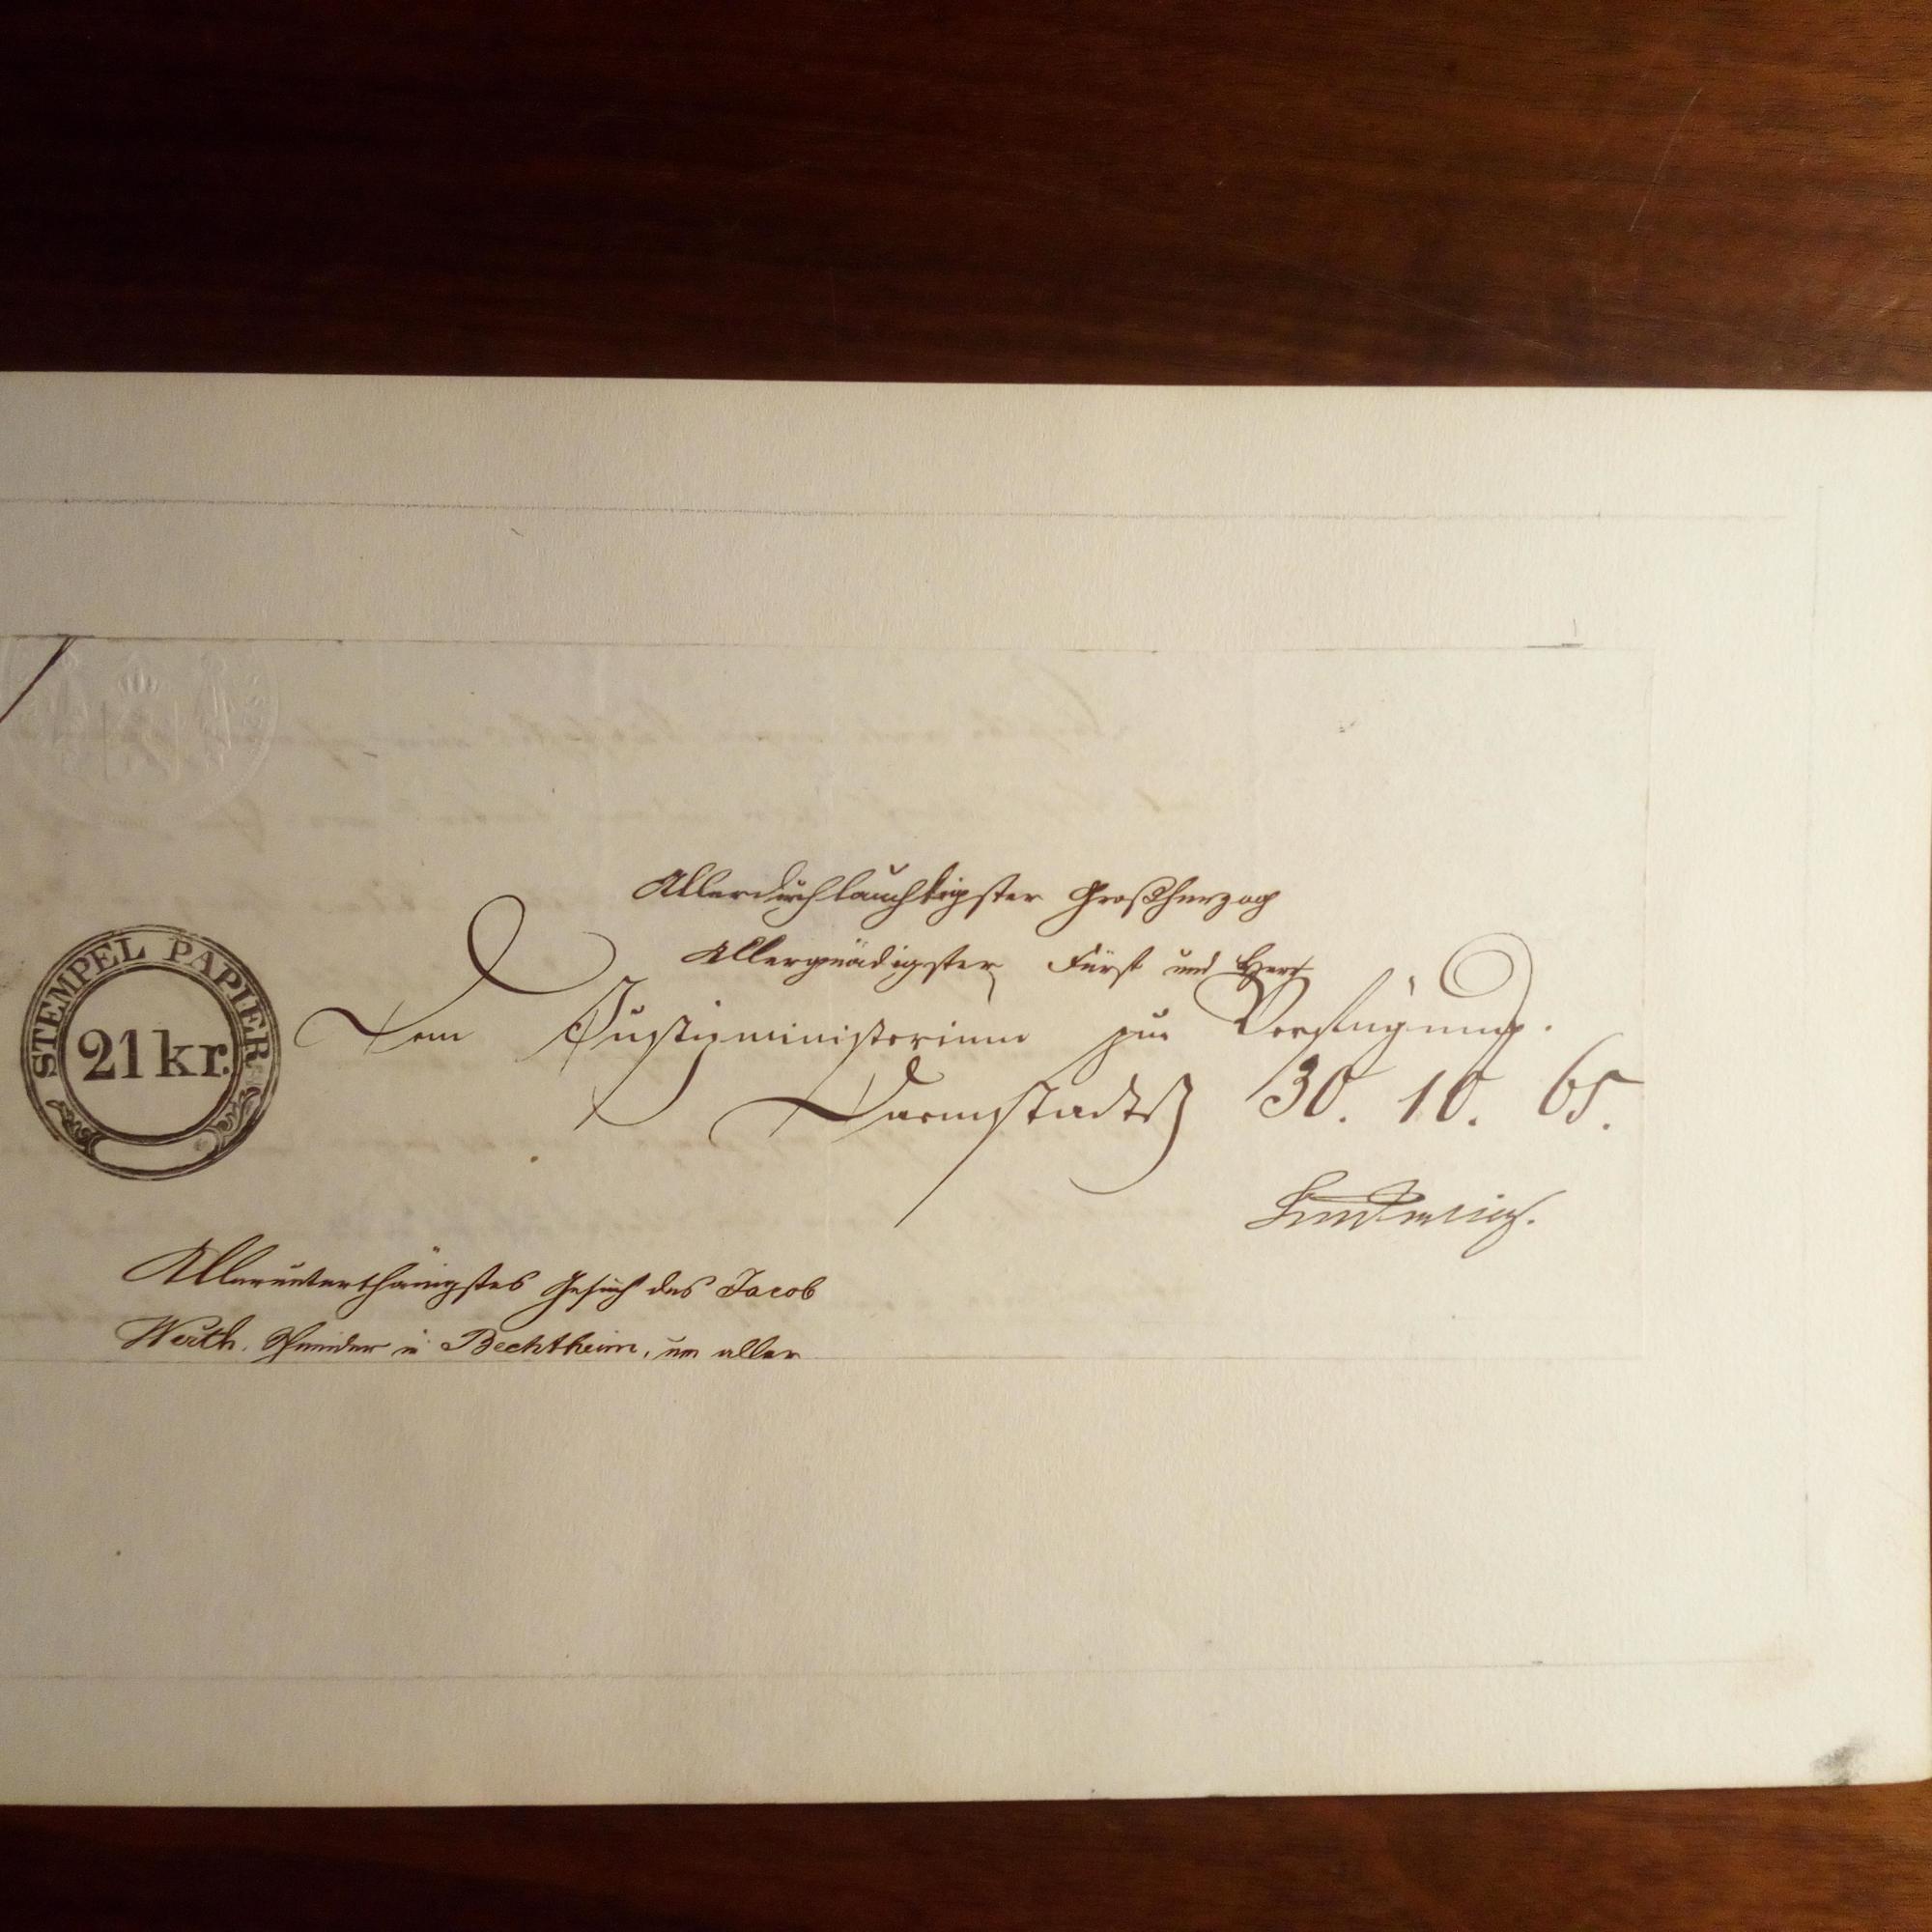 Allerdurchlauchtigster Großherzog
Allergnädigster Fürst und Herr
STEMPEL PAPIER
21 kr.
Dem Justizministerium zur Verfügung.
Darmstadt 30. 10. 65.
Allerunterthänigstes Gesuch des Jacob
Schneider in Bechtheim, um aller